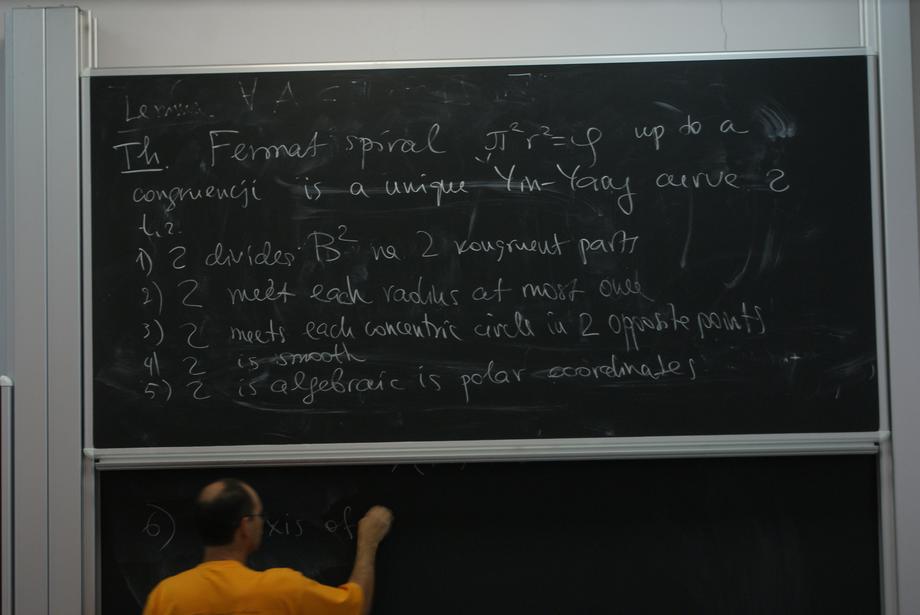 Lemma. ∀ A =
Th. Fermat spiral π²r²=φ up to a
congruencji is a unique Yin-Yang curve 2
t.2.
1) 2 divides B² na 2 kongruent parts
2) 2 meet each radius at most once
3) 2 meets each concentric circle in 2 opposite points
4) 2 is smooth
5) 2 is algebraic is polar coordinates
6) xis of